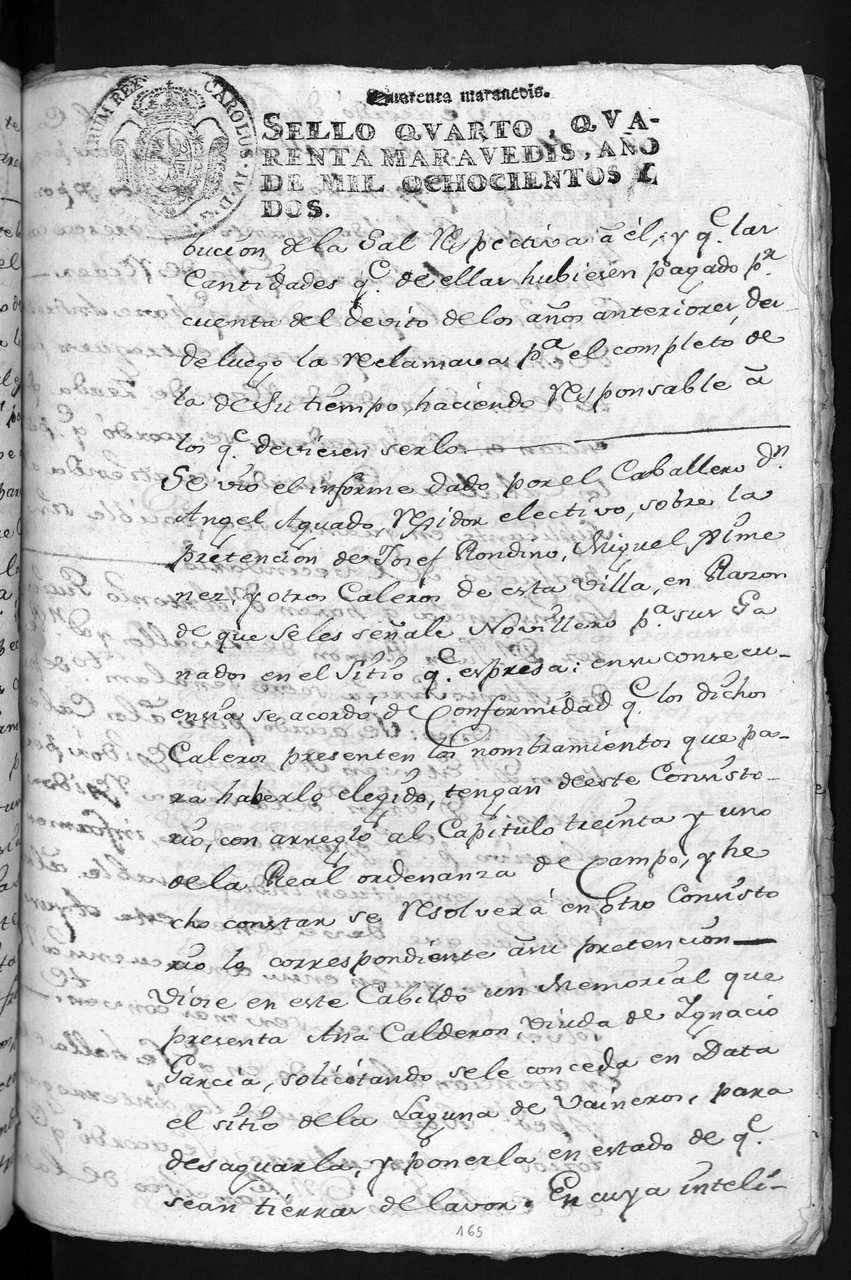 CAROLUS IV D. G. RUM REX
Quarenta maravedis.
SELLO QVARTO, QVA-
RENTA MARAVEDIS, AÑO
DE MIL OCHOCIENTOS Y
DOS.
bucion de la Sal respectiva â él, y qe. las
Cantidades qe. de ellas hubiesen pagado pr.
cuenta del devito de los años anteriores, des
de luego la reclamava pa. el completo de
la de su tiempo, haciendo responsable â
los qe. deviesen serlo
Se vio el informe dado por el Caballero dn.
Angel Aguado, rejidor electivo, sobre la
pretencion de Josef Rondino, Miguel Xime
nez, y otros Caleros de esta villa, en Razon
de que se les señale Novillero pa. sus Ga
nados en el Sitio qe. espresa: en su consecu
encia se acordó de Conformidad qe. los dichos
Caleros presenten los nombramientos que pa-
ra haberlo elegido, tengan de este Consisto-
rio, con arreglo al Capitulo treinta y uno
de la Real ordenanza de Campo, y he
cho constar se resolverá en otro Consisto
rio lo correspondiente â su pretencion
Viose en este Cabildo un Memorial que
presenta Ana Calderon, Viuda de Ignacio
Garcia, solicitando se le conceda en Data
el sitio de la Laguna de Vaineros, para
desaguarla, y ponerla en estado de qe.
sean tierras de lavor. En cuya inteli-
165